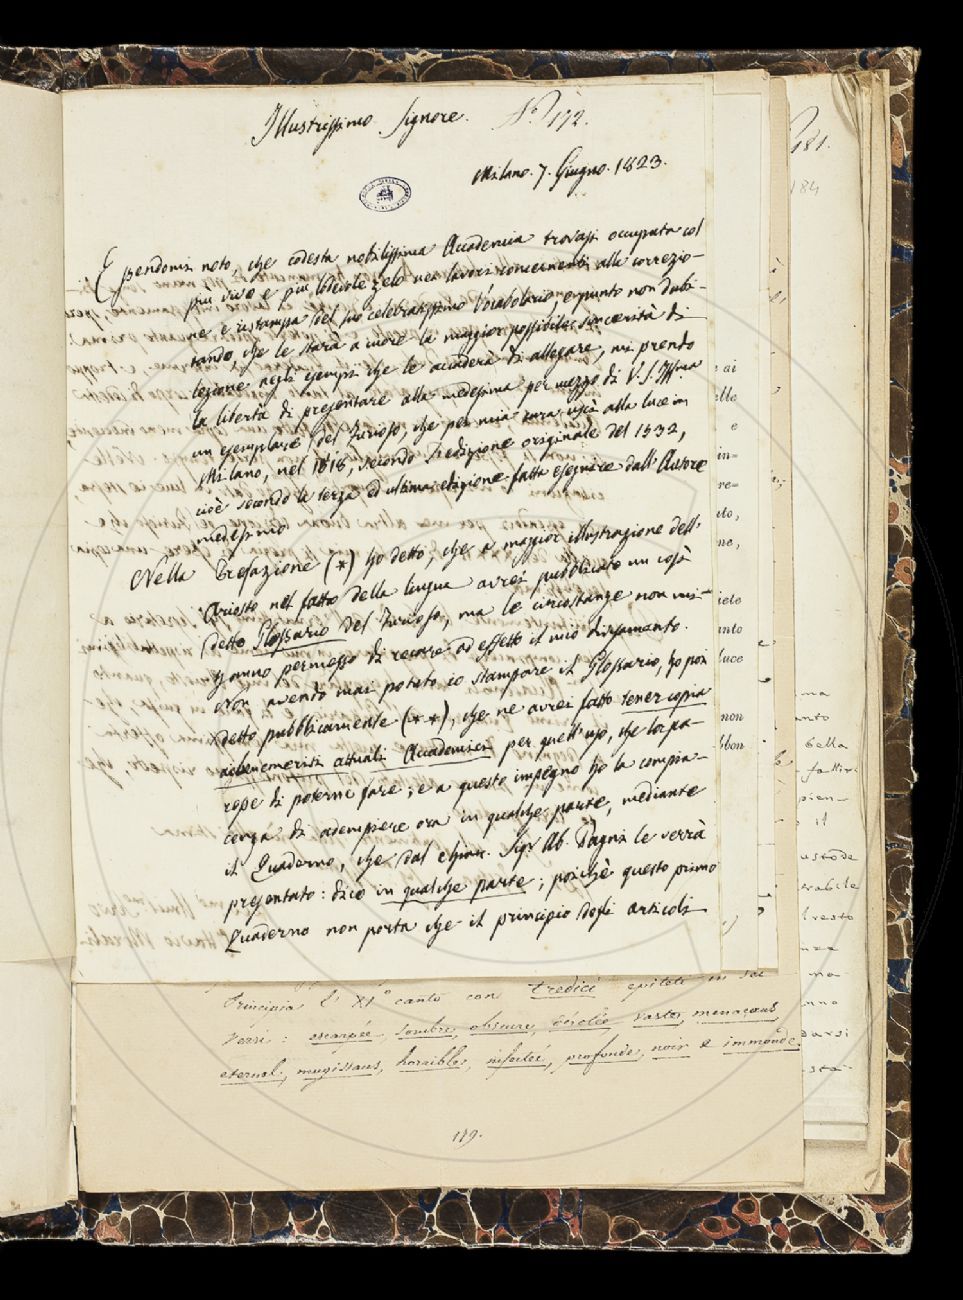 Illustrissimo Signore. N.° 172.
Milano. 7. Giugno. 1823.
Essendomi noto, che codesta nobilissima Accademia trovasi occupata col
più vivo e più lodevole zelo nei lavori concernenti alla correzio-
ne e ristampa del suo celebratissimo Vocabolario, e punto non dubi-
tando, che le starà a cuore la maggior possibile sincerità di
lezione negli esempi che le accaderà di allegare, mi prendo
la libertà di presentare alla medesima per mezzo di V. S. Illma
un esemplare del Furioso, che per mia cura uscì alla luce in
Milano, nel 1818, secondo l'edizione originale del 1532,
cioè secondo la terza ed ultima edizione fatta eseguire dall'Autore
medesimo.
Nella Prefazione (*) ho detto, che a maggior illustrazione dell'
Ariosto nel fatto della lingua avrei pubblicato un così
detto Glossario del Furioso, ma le circostanze non mi
hanno permesso di recare ad effetto il mio divisamento.
Non avendo mai potuto io stampare il Glossario, ho poi
detto pubblicamente (**), che ne avrei fatto tener copia
ai benemeriti attuali Accademici per quell'uso, che lor pa-
resse di poterne fare; e a questo impegno ho la compia-
cenza di adempiere ora in qualche parte, mediante
il Quaderno, che dal chiar. Sigr Ab. Pagni le verrà
presentato: dico in qualche parte; poichè questo primo
Quaderno non porta che il principio degli articoli
Principia l'XI° canto con tredici epiteti in sei
versi: escarpée, sombre, obscure, désolée, vastes, menaçans,
eternal, mugissans, horribles, infectée, profonde, noir e immonde.
119.
181.
184
ai
ello
e
in-
re-
to,
ne,
ielo
anto
luce
non
bbon
ma
anto
bella
pien-
il
ustode
erabile
resto
nza
ma-
nno
darsi
sta-